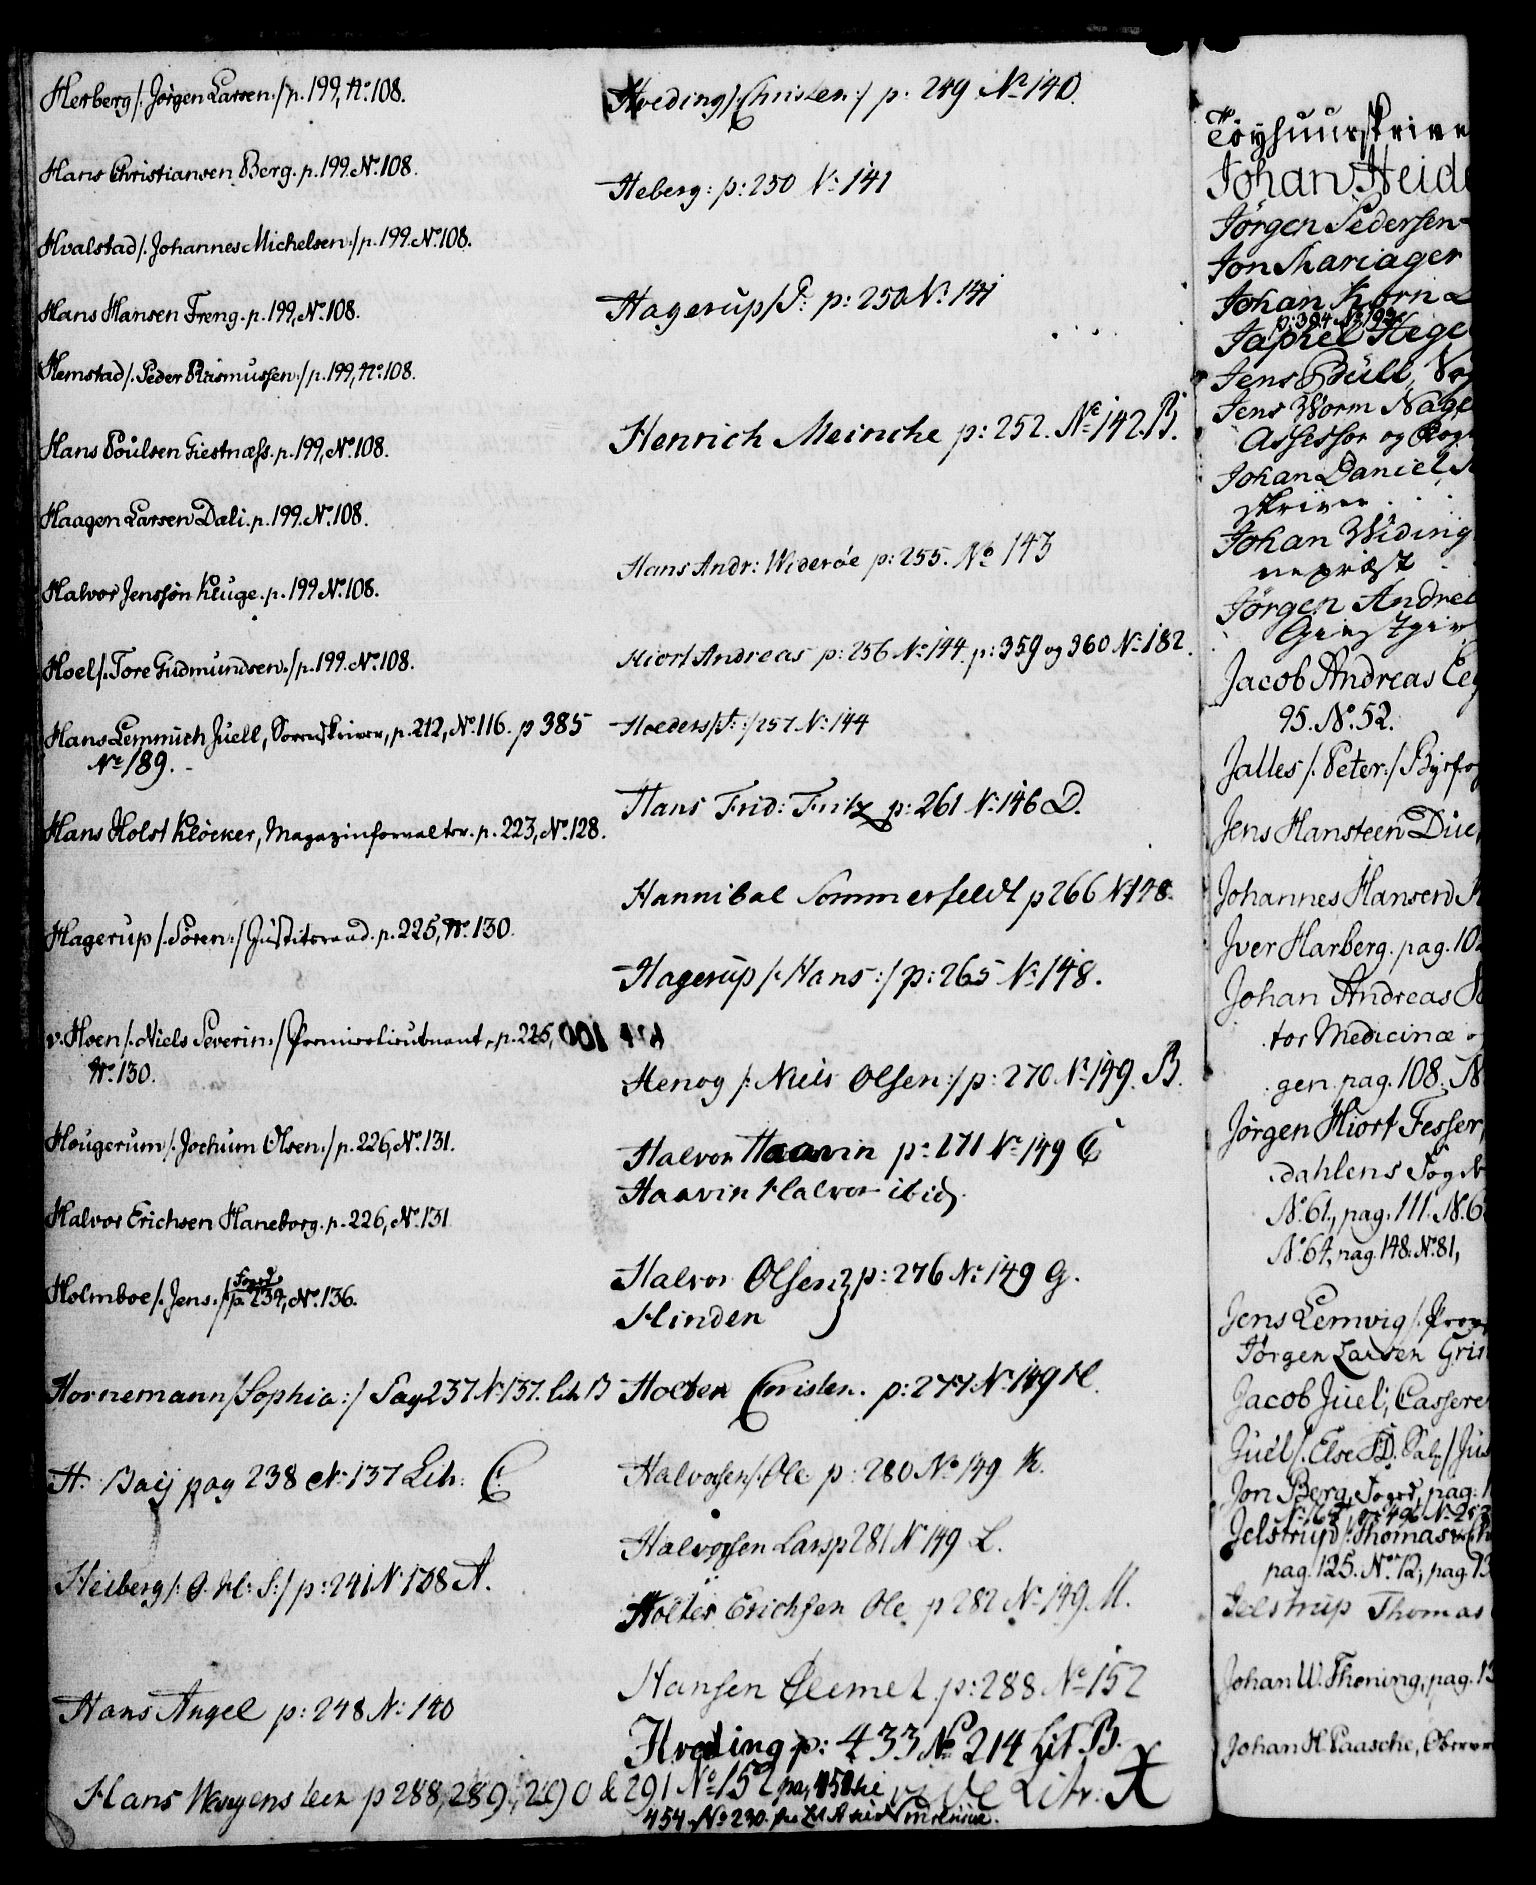 Herberg /: Jørgen Larsen :/ p. 199, No. 108.
Hans Christiansen Berg. p. 199. No. 108.
Hvalstad /: Johannes Michelsen :/ p. 199. No. 108.
Hans Hansen Freng. p. 199, No. 108.
Hemstad /: Peder Rasmussen :/ p. 199, No. 108.
Hans Poulsen Giestnæss. p. 199, No. 108.
Haagen Larsen Dali. p. 199. No. 108.
Halvor Jenssøn Kluge. p. 199 No. 108.
Hoel /: Tore Gudmundsen :/ p. 199. No. 108.
Hans Lemmich Juell, Sorenskriver, p. 212, No. 116. p 385
No 189.
Hans Holst Kløcker, Magazinforvalter. p. 223, No. 128.
Hagerup /: Søren :/ Justitsraad. p. 225, No. 130.
v. Hoen /: Niels Severin :/ Premierlieutnant, p. 225,
No. 130.
Hougerum /: Jochum Olsen :/ p. 226, No. 131.
Halvor Erichsen Haneborg. p. 226, No. 131
Holmboe /: Jens :/ Foged p. 234, No. 136.
Hornemann /: Sophia :/ Pag 237 No 137. Lit. B
H: Baij pag 238 No 137 Litr: C.
Heiberg /: G. H: S: / p: 241 No 138 A.
Hans Angel p: 248 No: 140
Hans p 288, 289, 290 & 291 No 152 vide Litr: X
454. No 230.
Hveding /: Christen :/ p. 249 No 140.
Heberg: p: 250 No: 141
Hagerup /: P: p: 250 No: 141
Henrich Meincke p: 252. No 142. B.
Hans Andr: Widerøe p: 255. No 143
Hiort Andreas p: 256 No 144. p: 359 og 360 No 182.
257 No: 144
Hans Frid: Fritz p: 261 No: 146 D.
Hannibal Sommerfeldt p 266 No 148.
Hagerup /: Hans :/ p: 265 No 148.
Henog /: Niels Olsen :/ p: 270 No 149. B.
Halvor Haavin p: 271 No 149 C
Haavin Halvor ibid.
Halvor Olsen } p: 276 No 149 G.
Hinden
Holten Christen. p: 277: No 149 H.
Halvorsen /: Ole p: 280 No 149 K.
Halvorsen Lars p 281 No 149 L.
Holter Erichsen Ole p 282 No 149 M.
Hansen Clemet p: 288 No 152
Hveding p: 433 No 214 Lit B.
Tøyhuusskrive
Johan Heide
Jørgen Pedersen
Jon Mariager
Johan Korn
p: 394 No 193
Japhet Hege
Jens Büll, Vo
Jens Worm Nage
Assessor og
Johan Daniel
skriver
Johan Widing
nepræst
Jørgen Andre
Giestgiv
Jacob Andreas
95. No. 52.
Jalles /: Peter :/ Byefo
Jens Hansteen Due,
Johannes Hansen
Iver Harberg. pag. 10
Johan Andreas
tor Medicinæ
gen. pag. 108. N
Jørgen Hiort Fesser,
dahlens Fog
No. 61, pag. 111. No. 6
No. 64, pag. 148. No. 81,
Jens Lemvig /:
Jørgen Larsen
Jacob Juel, Cassere
Juel /: Else
Jon Berg, Foged, pag.
Jelstrup /: Thomas
pag. 125. No. 72, pag. 13
Jelstrup Thomas
Johan W. Thoning, pag. 13
Johan H. Paasche,